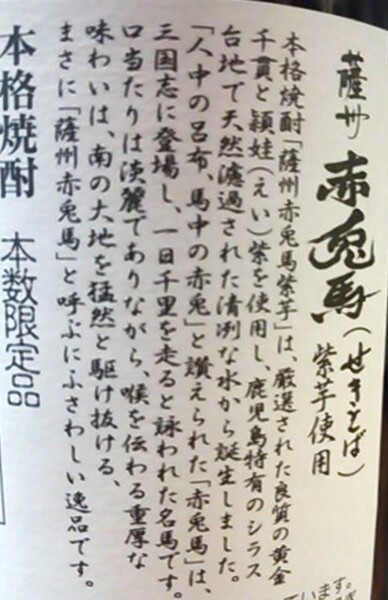 薩州 赤兎馬(せきとば)
紫芋使用
本格焼酎「薩州赤兎馬紫芋」は、厳選された良質の黄金
千貫と頴娃(えい)紫を使用し、鹿児島特有のシラス
台地で天然濾過された清冽な水から誕生しました。
「人中の呂布、馬中の赤兎」と讃えられた「赤兎馬」は、
三国志に登場し、一日千里を走ると詠われた名馬です。
口当たりは淡麗でありながら、喉を伝わる重厚な
味わいは、南の大地を猛然と駆け抜ける、
まさに「薩州赤兎馬」と呼ぶにふさわしい逸品です。
本格焼酎 本数限定品
ています。